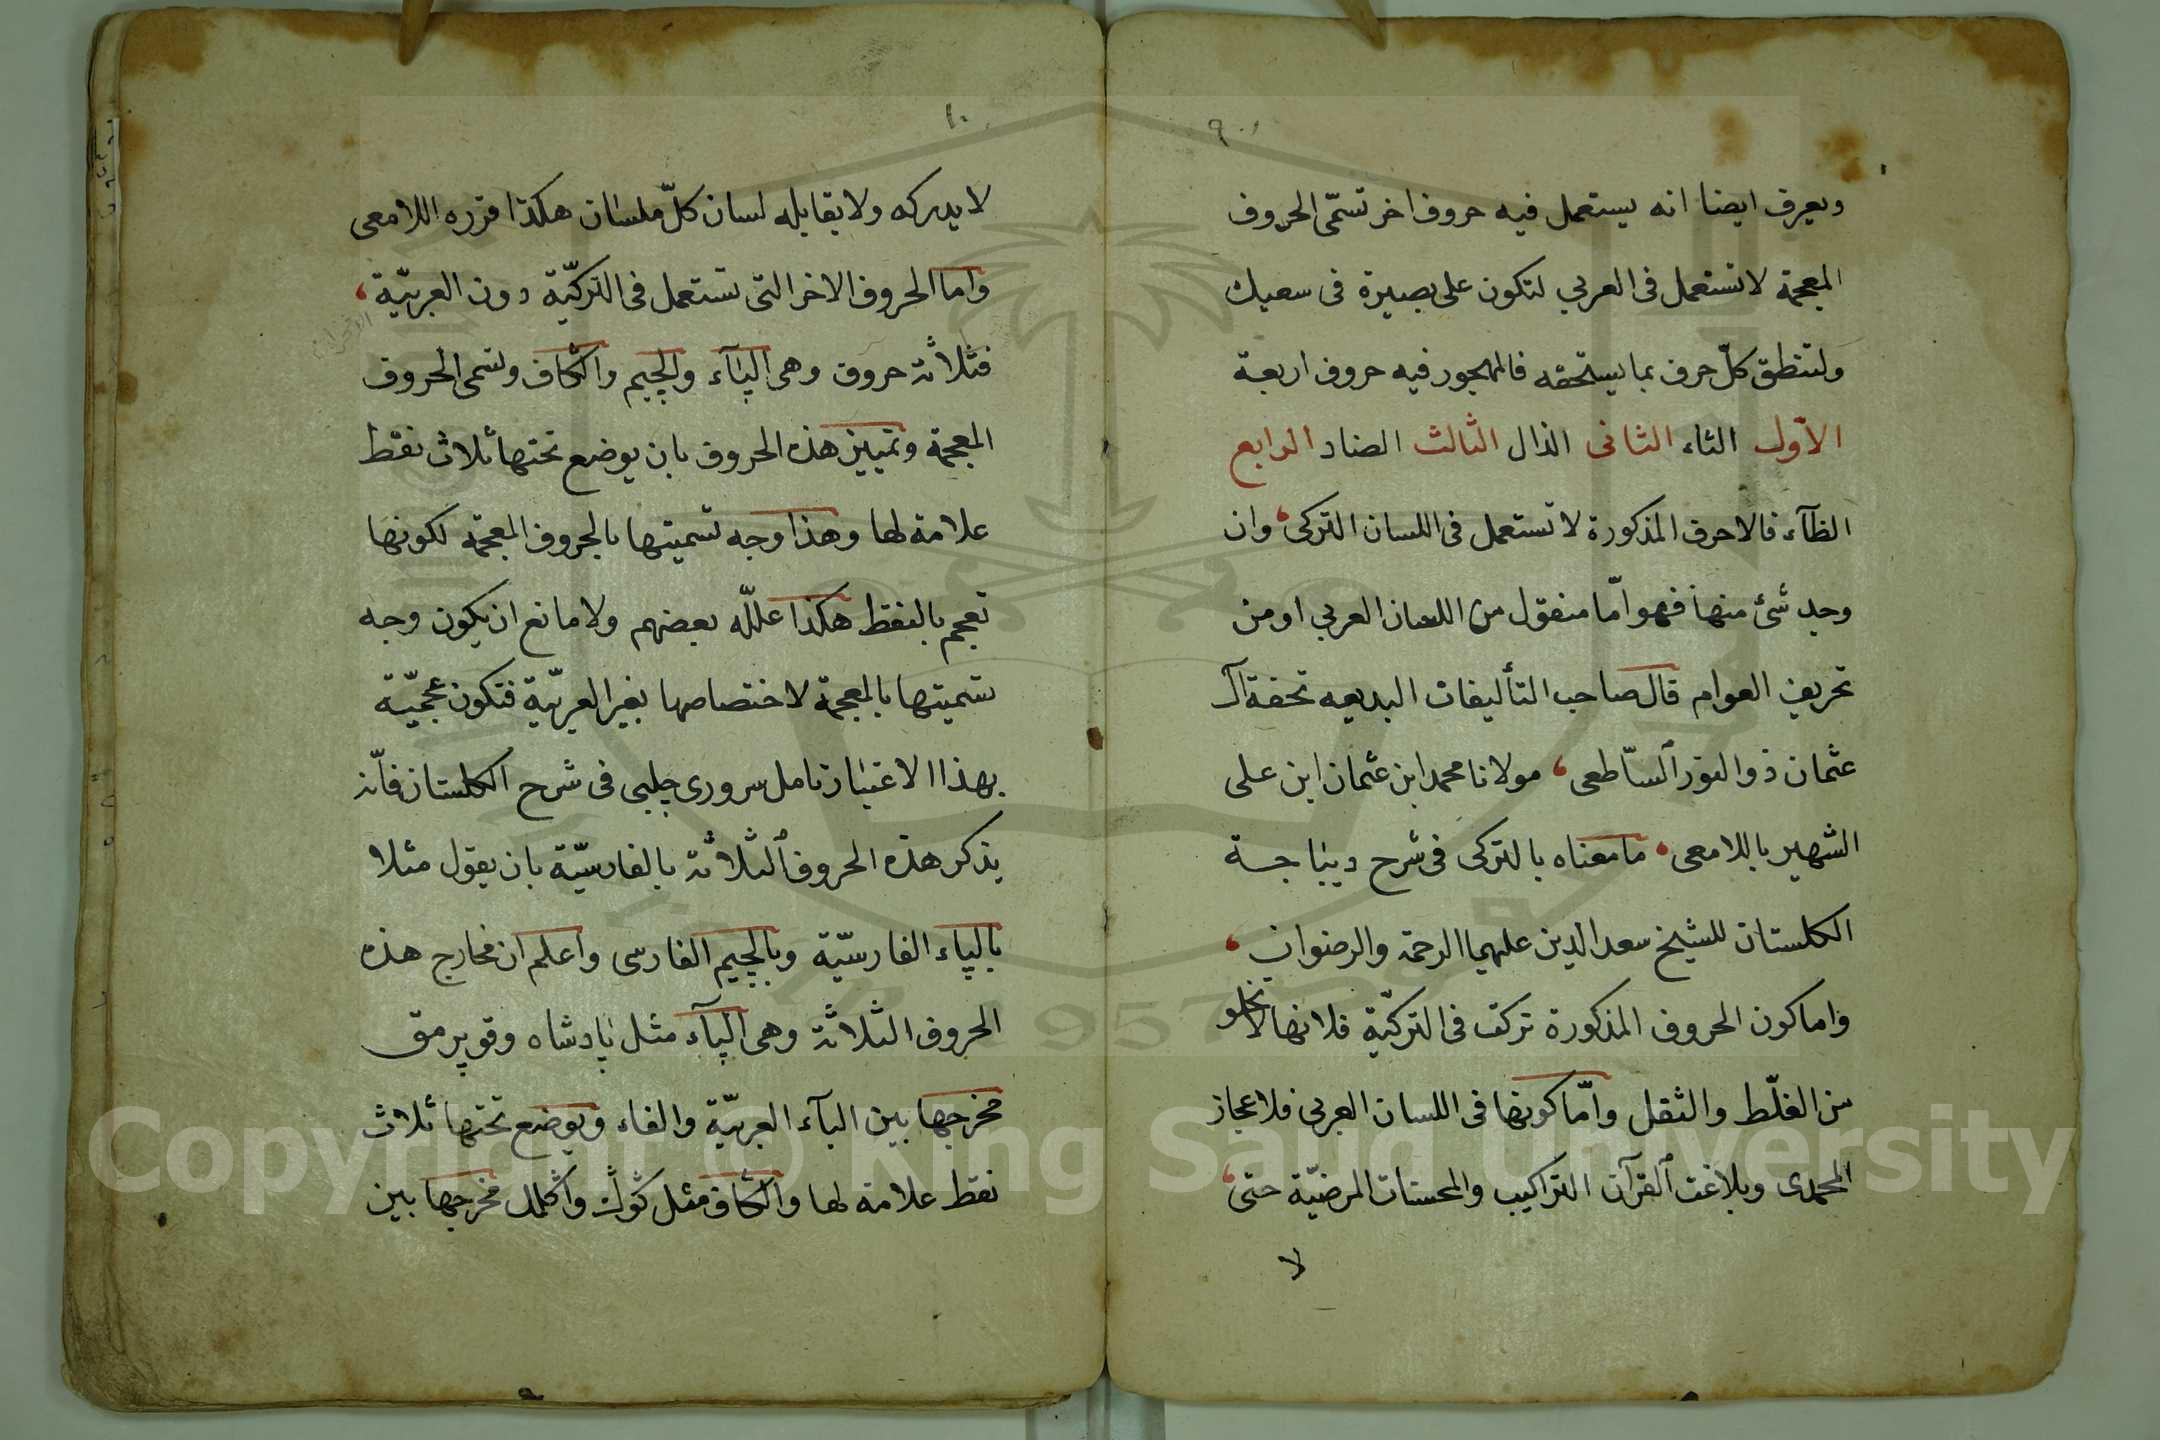 ٩٠١
ويعرف ايضا انه يستعمل فيه حروف اخر تسمّى الحروف
المعجمة لا تستعمل فى العربي لتكون على بصيرة فى سعيك
ولتنطق كلّ حرف بما يستحقه فالمهجور فيه حروف اربعة
الاول الثاء الثانى الذال الثالث الضاد الرابع
الظآء فالاحرف المذكورة لا تستعمل فى اللسان التركى وان
وجد شئ منها فهو امّا منقول من اللسان العربي او من
تحريف العوام قال صاحب التأليفات البديعه تحفة آل
عثمان ذو النور السّاطعى مولانا محمد ابن عثمان ابن على
الشهير باللامعى ما معناه بالتركى فى شرح ديباجة
الكلستان للشيخ سعد الدين عليهما الرحمة والرضوان
واما كون الحروف المذكورة تركت فى التركيّة فلانها لا تخلو
من الغلّظ والثقل وامّا كونها فى اللسان العربى فلاعجاز
المحمدى وبلاغت القرآن التراكيب والمحسنات المرضيّة حتى
لا
١٠
لا يدركه ولا يقابله لسان كلّ ملسان هكذا قرره اللامعى
واما الحروف الاخر التى تستعمل فى التركيّة دون العربيّة
فثلاثة حروف وهى الپآء والچيم والكاف وتسمى الحروف
المعجمة وتمييز هذه الحروف بان يوضع تحتها ثلاث نقط
علامة لها وهذا وجه تسميتها بالحروف المعجمة لكونها
تعجم بالنقط هكذا علله بعضهم ولا مانع ان يكون وجه
تسميتها بالمعجمة لاختصاصها بغير العربيّة فتكون عجميّة
بهذا الاعتبار تامل سرورى چلبى فى شرح الكلستان فانّه
يذكر هذه الحروف الثلاثة بالفارسيّة بان يقول مثلا
بالپاء الفارسيّة وبالچيم الفارسى واعلم ان مخارج هذه
الحروف الثلاثة وهى الپآء مثل پادشاه وقوپرمق
مخرجها بين البآء العربيّة والفاء ويوضع تحتها ثلاث
نقط علامة لها والكاف مثل مخرجها بين
Copyright © King Saud University
1957